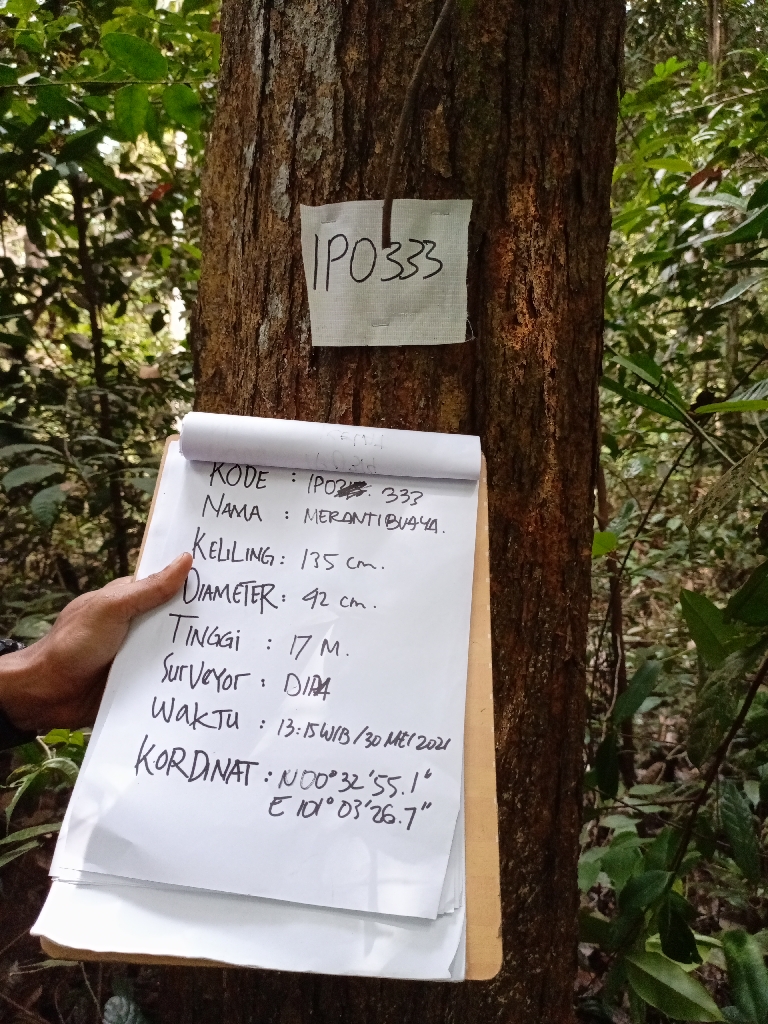 IPO333
KODE : IPO 333
NAMA : MERANTI BUAYA.
KELILING : 135 cm.
DIAMETER : 42 cm.
TINGGI : 17 M.
SURVEYOR : DIPA
WAKTU : 13:15 WIB / 30 MEI 2021
KORDINAT : N 00° 32' 55.1"
E 101° 03' 26.7"